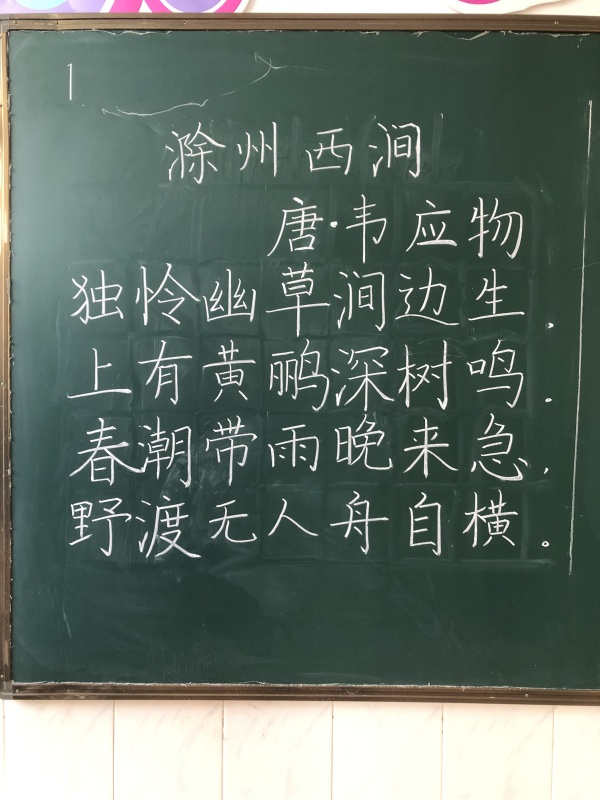 1
滁州西涧
唐·韦应物
独怜幽草涧边生，
上有黄鹂深树鸣。
春潮带雨晚来急，
野渡无人舟自横。